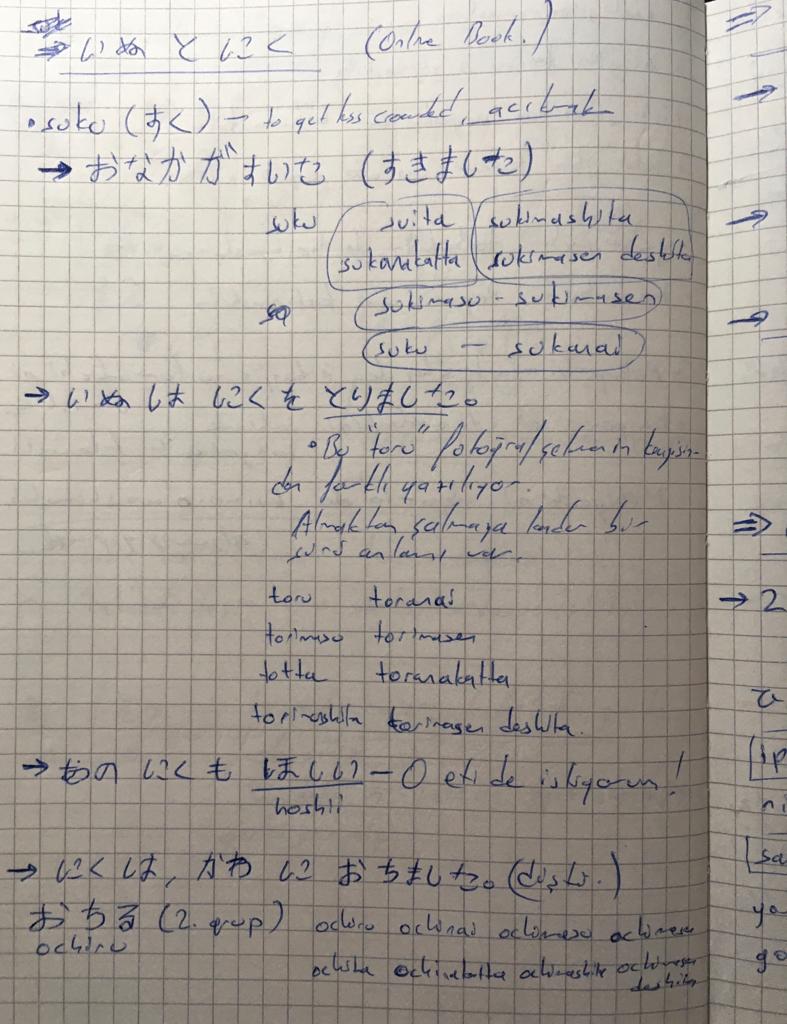 ⇒ いぬ と にく (Online Book.)
• suku (すく) – to get less crowded, acıkmak
→ おなか が すいた (すきました)
suku suita sukimashita
sukanakatta sukimasen deshita
sukimasu - sukimasen
suku – sukanai
→ いぬ は にく を とりました。
• Bu "toru" fotoğraf çekmenin kanjisin-
den farklı yazılıyor.
Almaktan çalmaya kadar bir
sürü anlamı var.
toru toranai
torimasu torimasen
totta toranakatta
torimashita torimasen deshita.
→ あの にく も ほしい – O eti de istiyorum!
hoshii
→ にく は, かわ に おちました。(düştü.)
おちる (2. grup) ochiru ochinai ochimasu ochimasen
ochiru
ochita ochinakatta ochimashita ochimasen
deshita
⇒
→
→
→
⇒
→ 2
ip
ni
sa
ya
go